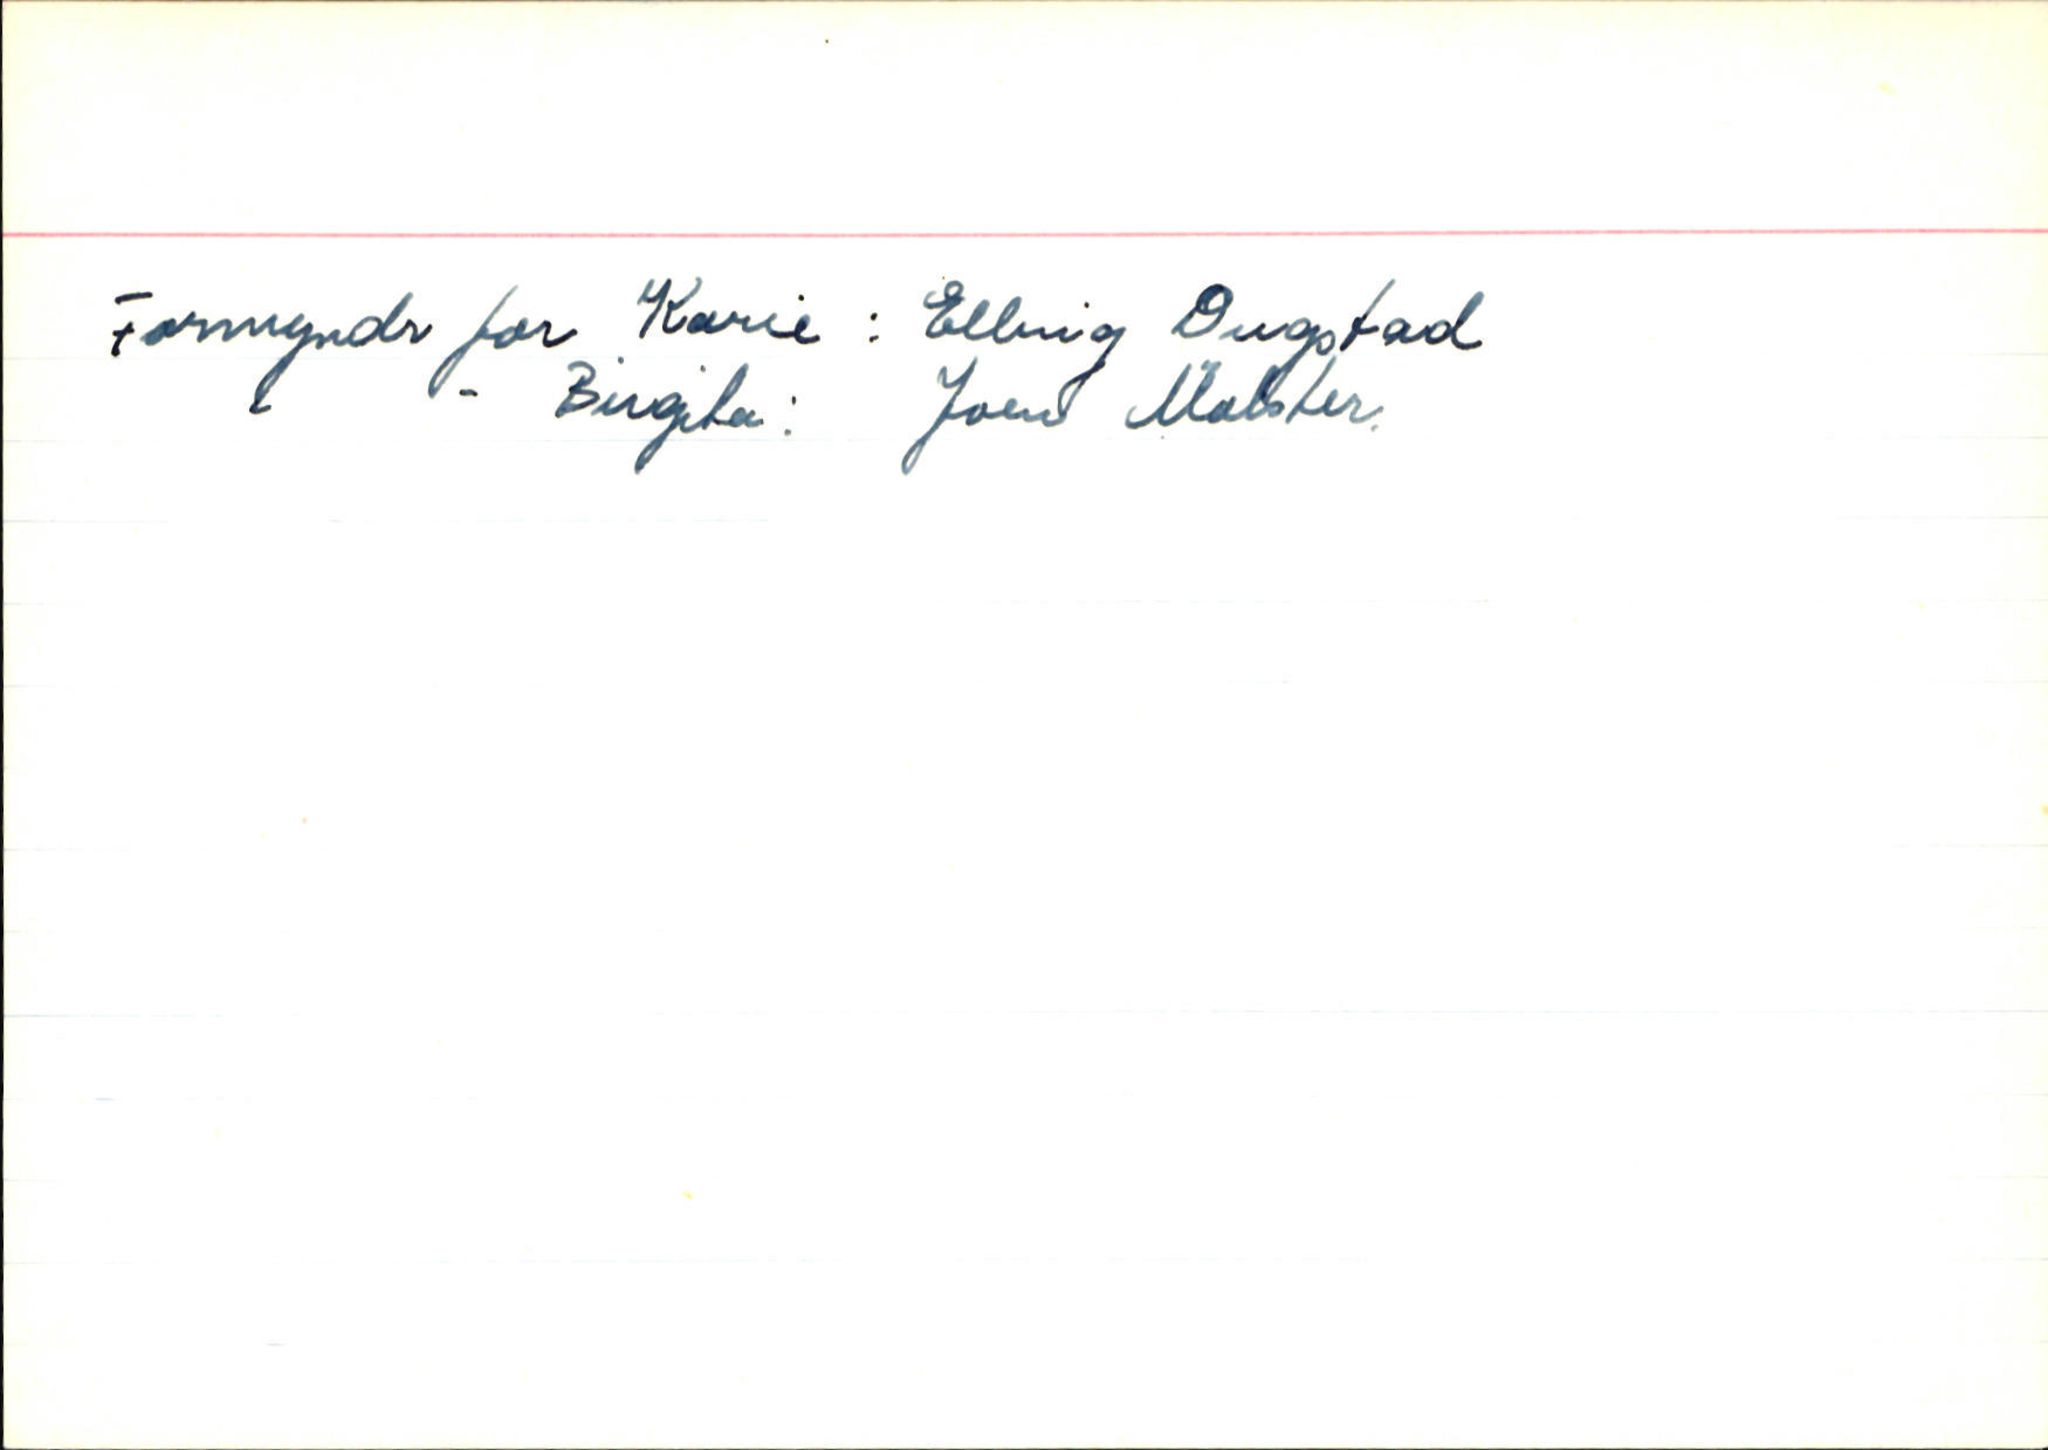 Formyndr for Karie : Elling Dugstad
- Birgita : Joen Mølster.